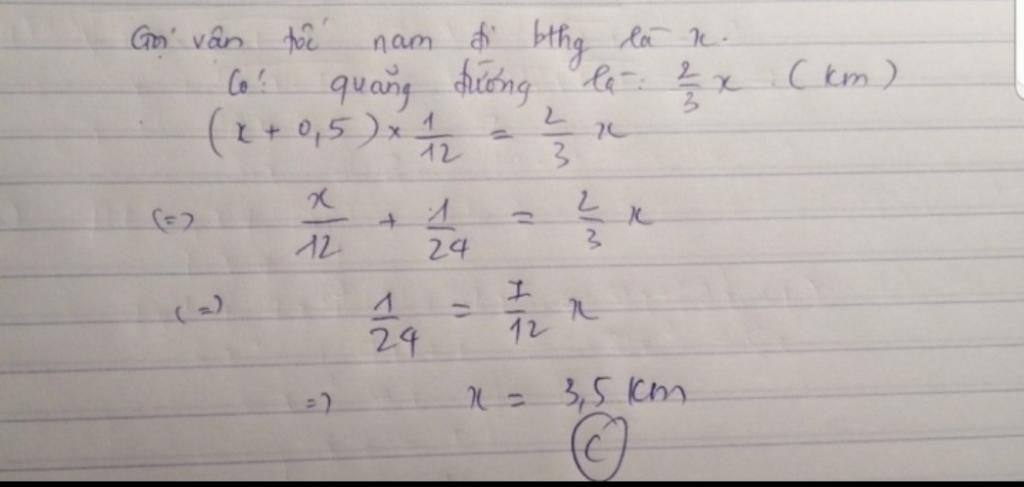 Gọi vân tốc nam đi bthg là x.
Có: quãng đường là: 2/3 x (km)
(x + 0,5) × 1/12 = 2/3 x
(=) x/12 + 1/24 = 2/3 x
(=) 1/24 = 7/12 x
=) x = 3,5 km
C